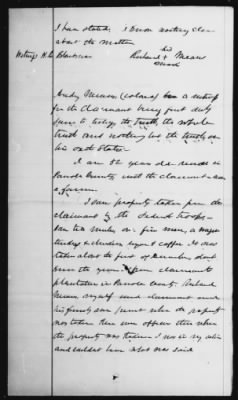 I have stated. I know nothing else
about the matter
his
Richard + Means
mark
Andy Means (colored) a witness
for the claimant being first duly
sworn to testify the truth the whole
truth and nothing but the truth on
his oath states
I am 32 years old reside in
Panola County with the claimant am
a farmer
I saw property taken from the
claimant by the Federal troops
ten mules or five mares, a wagon
turkeys & chickens sugar & coffee It was
taken about the first of December dont
know the year from claimants
plantation in Panola County. Richard
Means myself and claimant and
his family were present when the property
was taken there were officers there when
the property was taken I was in my cabin
and couldnt hear what was said